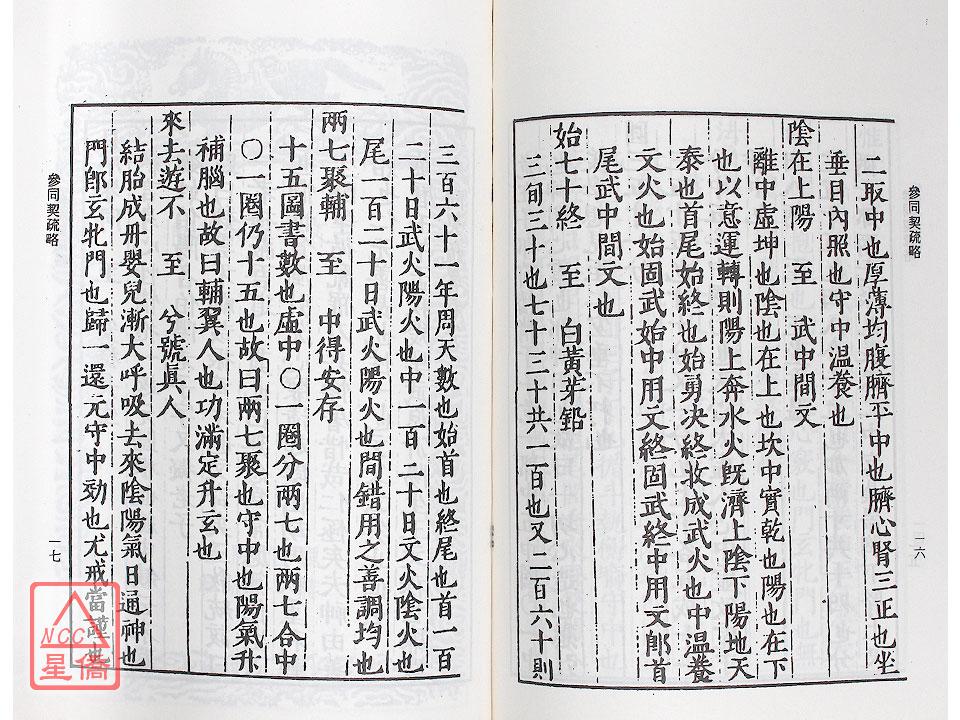 參同契疏略
二取中也厚薄均腹臍平中也臍心腎三正也坐
垂目內照也守中溫養也
陰在上陽　至　武中間文
離中虛坤也陰也在上也坎中實乾也陽也在下
也以意運轉則陽上奔水火旣濟上陰下陽地天
泰也首尾始終也始勇决終收成武火也中溫養
文火也始固武始中用文終固武終中用文郎首
尾武中間文也
始七十終　至　白黃芽鉛
三旬三十也七十三十共一百也又二百六十則
一六
三百六十一年周天數也始首也終尾也首一百
二十日武火陽火也中一百二十日文火陰火也
尾一百二十日武火陽火也間錯用之善調均也
兩七聚輔　至　中得安存
十五圖書數也虛中〇一圈分兩七也兩七合中
〇一圈仍十五也故曰兩七聚也守中也陽氣升
補腦也故曰輔翼人也功滿定升玄也
來去遊不　至　兮號眞人
結胎成丹嬰兒漸大呼吸去來陰陽氣日通神也
門郎玄牝門也歸一還元守中効也尤戒當謹
參同契疏略
一七
NCC
星僑